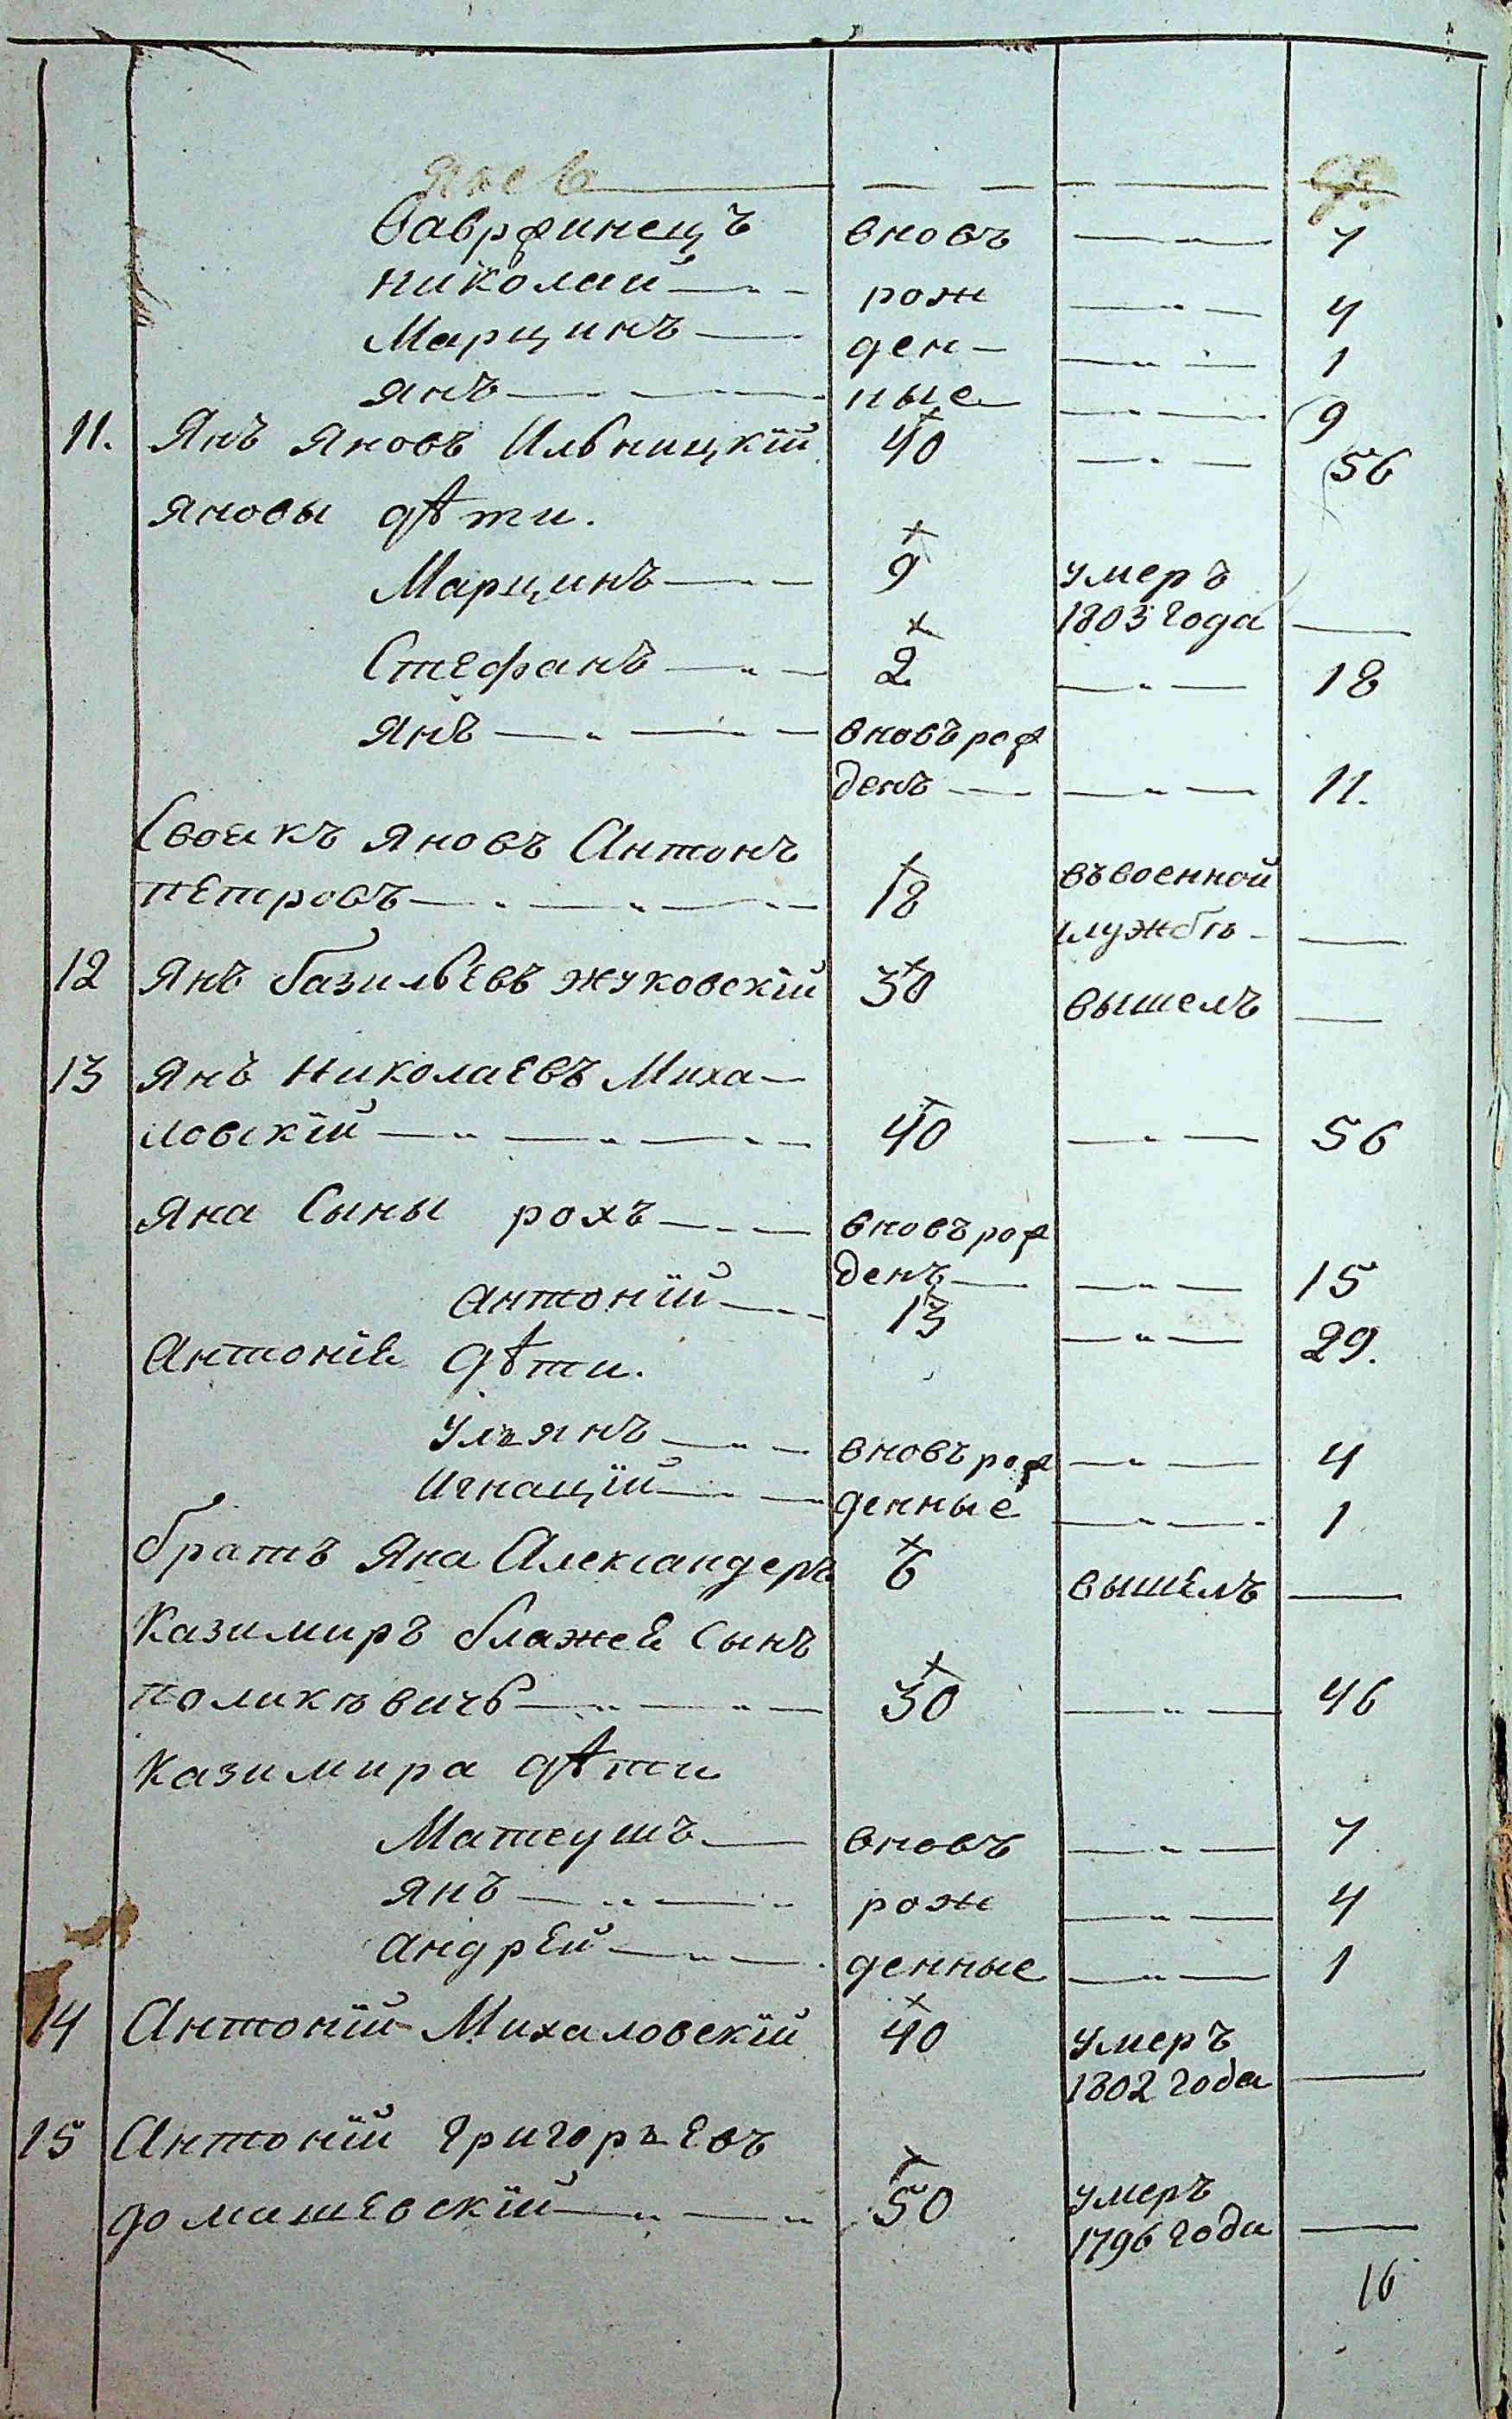 Ваврфинецъ вновь 7
Николаи рож 4
Марцинъ ден- 1
Янъ ные 9
11. Янъ Яновъ Ильницкій 40 56
Яновы дѣти.
Марцинъ 9 умеръ
1803 года
Стефанъ 2 18
Янъ вновь рож
денъ 11.
Своикъ Яновъ Антонъ
Петровъ 18 въ военной
службѣ
12 Янъ Базильевъ Жуковскій 30 вышелъ
13 Янъ Николаевъ Миха-
ловскій 40 56
Яна Сыны Рохъ вновь рож
денъ 15
Антоній 13 29.
Антонія дѣти.
Ульянъ вновь рож 4
Игнацій денные 1
братъ Яна Александеръ 6 вышелъ
Казимиръ Блажея Сынъ
Поликѣвичь 30 46
Казимира дѣти
Матеушъ вновь 7
Янъ рож 4
Андрей денные 1
14 Антоній Михаловскій 40 умеръ
1802 года
15 Антоній Григорьевъ
Домашевскій 50 умеръ
1796 года
16